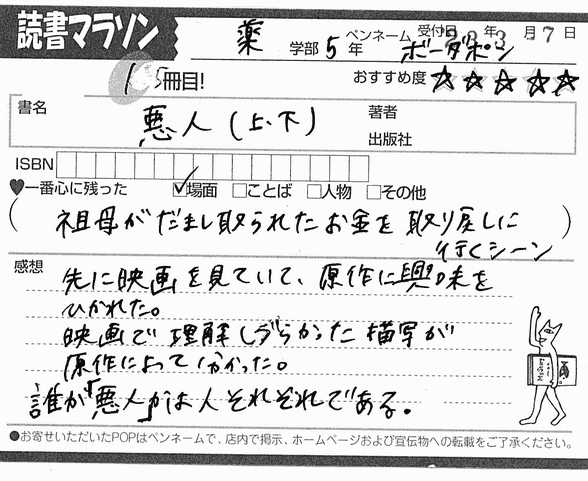 読書マラソン
受付日 23年 3月 7日
薬 学部 5 年 ペンネーム ボーダポン
15冊目!
おすすめ度 ☆☆☆☆☆
書名 悪人(上、下)
著者
出版社
ISBN
♥一番心に残った ☑場面 □ことば □人物 □その他
(祖母がだまし取られたお金を取り戻しに
行くシーン)
感想
先に映画を見ていて、原作に興味を
ひかれた。
映画で理解しづらかった描写が
原作によって分かった。
誰が『悪人』かは人それぞれである。
●お寄せいただいたPOPはペンネームで、店内で掲示、ホームページおよび宣伝物への転載をご了承ください。